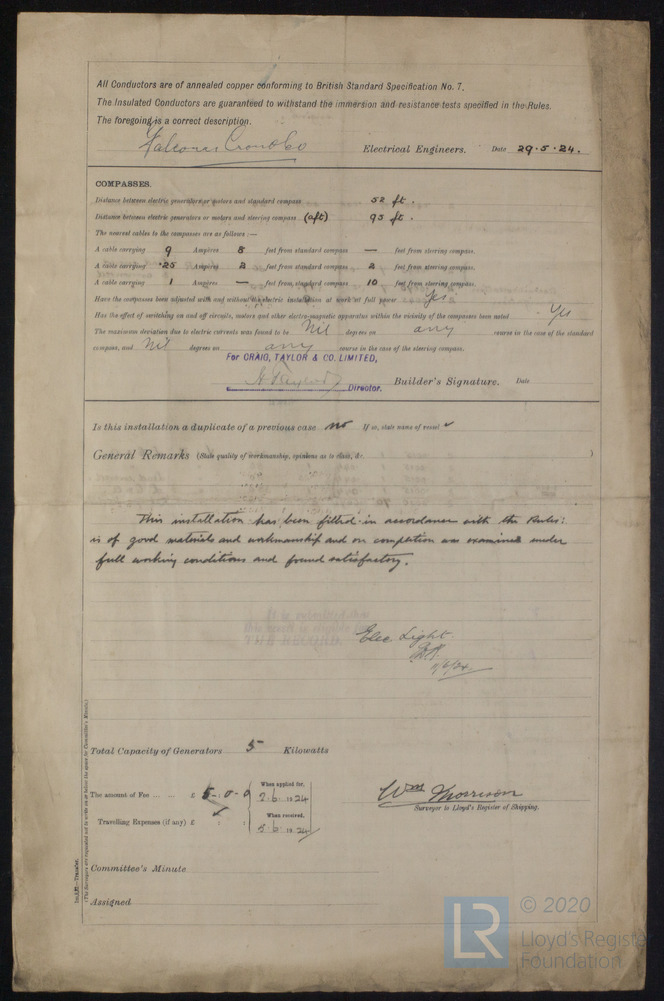 All Conductors are of annealed copper conforming to British Standard Specification No. 7.
The Insulated Conductors are guaranteed to withstand the immersion and resistance tests specified in the Rules.
The foregoing is a correct description.
Electrical Engineers. Date 29.5.24.
COMPASSES.
Distance between electric generators or motors and standard compass 52 ft.
Distance between electric generators or motors and steering compass (aft) 95 ft.
The nearest cables to the compasses are as follows :—
A cable carrying 9 Ampères 8 feet from standard compass — feet from steering compass.
A cable carrying .25 Ampères 2 feet from standard compass 2 feet from steering compass.
A cable carrying 1 Ampères — feet from standard compass 10 feet from steering compass.
Have the compasses been adjusted with and without the electric installation at work at full power Yes
Has the effect of switching on and off circuits, motors and other electro-magnetic apparatus within the vicinity of the compasses been noted - Yes
The maximum deviation due to electric currents was found to be Nil degrees on any course in the case of the standard
compass, and Nil degrees on any course in the case of the steering compass.
For CRAIG, TAYLOR & CO. LIMITED,
Director. Builder's Signature. Date
Is this installation a duplicate of a previous case no If so, state name of vessel
General Remarks (State quality of workmanship, opinions as to class, &c. )
This installation has been fitted in accordance with the Rules:
is of good materials and workmanship and on completion was examined under
full working conditions and found satisfactory.
THE RECORD.
Elec. Light.
11/6/24
Total Capacity of Generators 5 Kilowatts
The amount of Fee ... ... £ 5-0-0
When applied for,
2.6.1924
Travelling Expenses (if any) £ : :
When received,
3.6.1924
Wm Morrison
Surveyor to Lloyd's Register of Shipping.
Committee's Minute
Assigned
(The Surveyors are requested not to write on or below the space for Committee's Minute.)
© 2020
LR
Lloyd's Register
Foundation